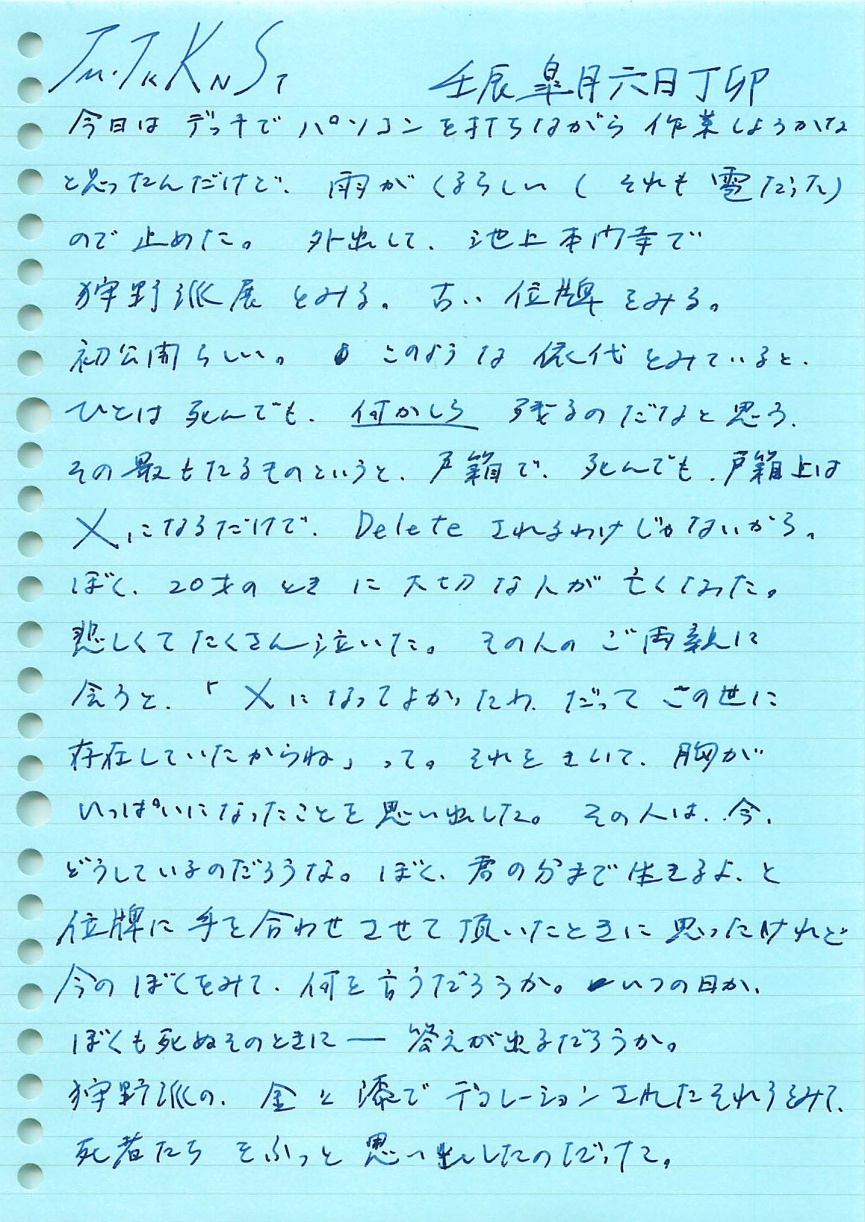 壬辰 皐月六日丁卯
今日は デッキで パソコン を打ちながら 作業しようかな
と思ったんだけど、雨がくるらしい(それも雹だった)
ので 止めた。 外出して、池上本門寺で
狩野派展 をみる。古い 位牌をみる。
初公開らしい。 このような 依代をみていると、
ひとは 死んでも、何かしら 残るのだなと思う、
その最もたるものというと、戸籍で、死んでも、戸籍上は
✕になるだけで、Delete されるわけじゃないから。
ぼく、20才のときに大切な人が亡くなった。
悲しくてたくさん泣いた。 その人の ご両親に
会うと、「✕になってよかったわ だって この世に
存在していたからね」って。それをきいて、胸が
いっぱいになったことを思い出した。 その人は、今、
どうしているのだろうな。ぼく、君の分まで生きるよ、と
位牌に手を合わせさせて頂いたときに 思ったけれど
今の ぼくをみて、何を言うだろうか。いつの日か、
ぼくも死ぬそのときに ― 答えが出るだろうか。
狩野派の、金と漆で デコレーションされたそれらをみて、
死者たち をふっと 思い出したのだった。